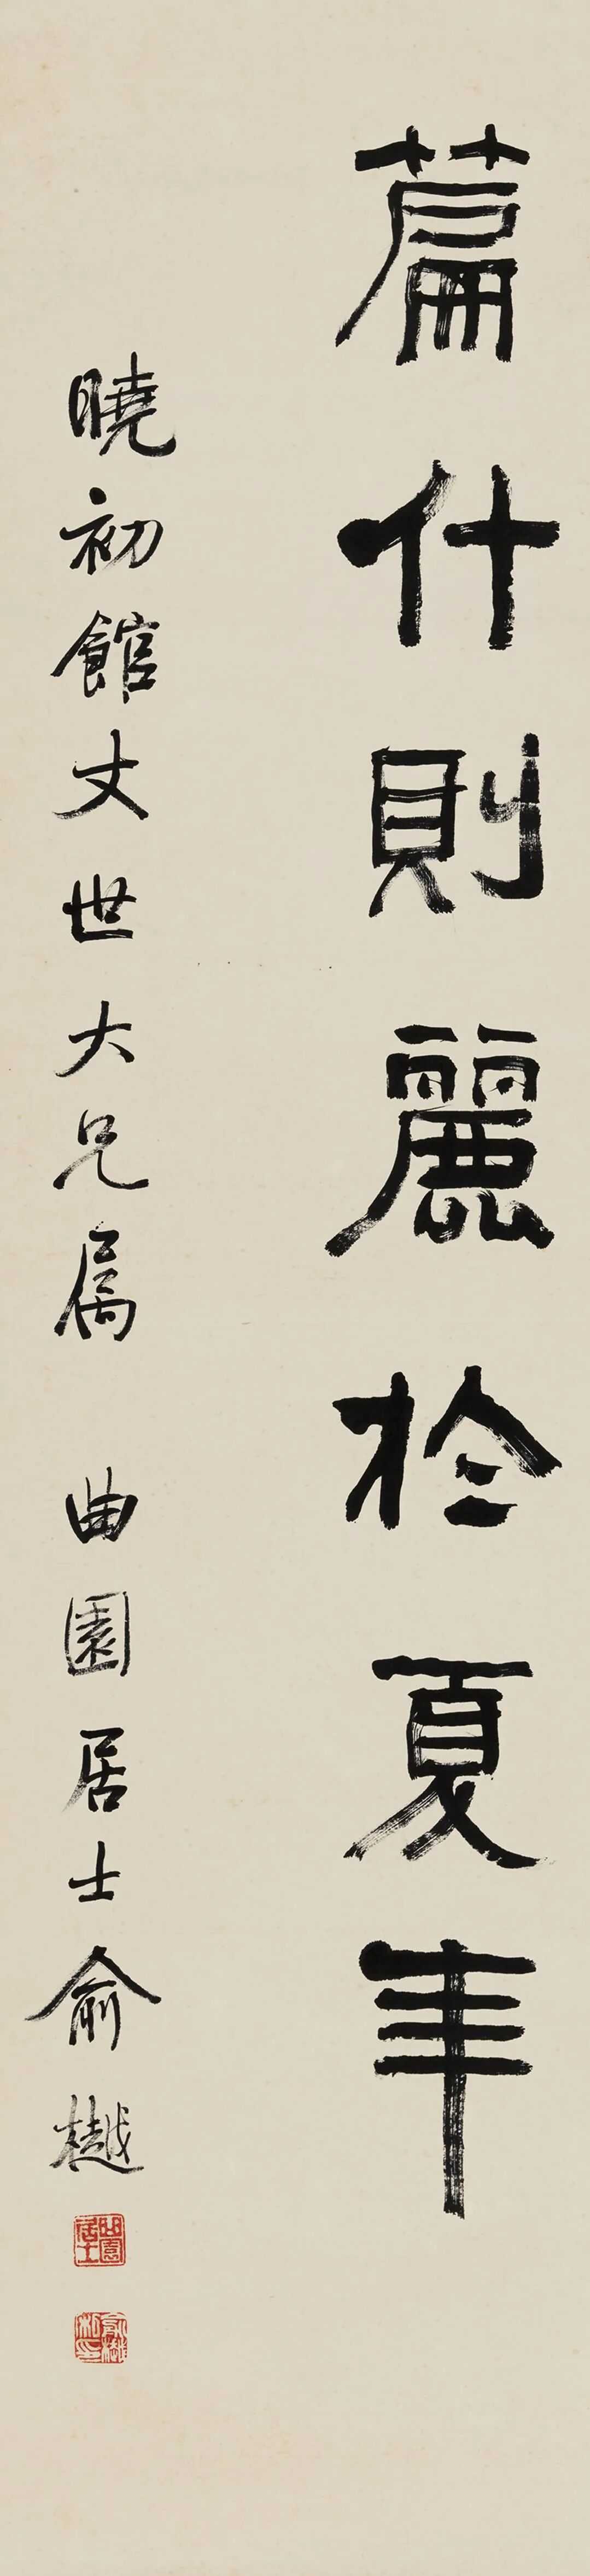 篇什則麗於夏年
曉初館丈世大兄属 曲園居士俞樾
曲園居士
俞樾私印